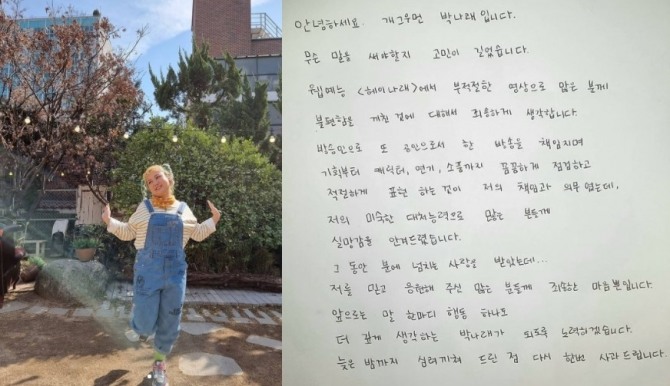 안녕하세요. 개그우먼 박나래 입니다.
무슨 말을 써야할지 고민이 길었습니다.
웹예능 <헤이나래>에서 부적절한 영상으로 많은 분께
불편함을 끼친 것에 대해서 죄송하게 생각합니다.
방송인으로 또 공인으로서 한 방송을 책임지며
기획부터 캐릭터, 연기, 소품까지 꼼꼼하게 점검하고
적절하게 표현 하는것이 저의 책임과 의무 였는데,
저의 미숙한 대처능력으로 많은 분들께
실망감을 안겨드렸습니다.
그 동안 분에 넘치는 사랑을 받았는데...
저를 믿고 응원해 주신 많은 분들께 죄송한 마음뿐입니다.
앞으로는 말 한마디 행동 하나도
더 깊게 생각하는 박나래가 되도록 노력하겠습니다.
늦은 밤까지 심려끼쳐 드린 점 다시 한번 사과 드립니다.